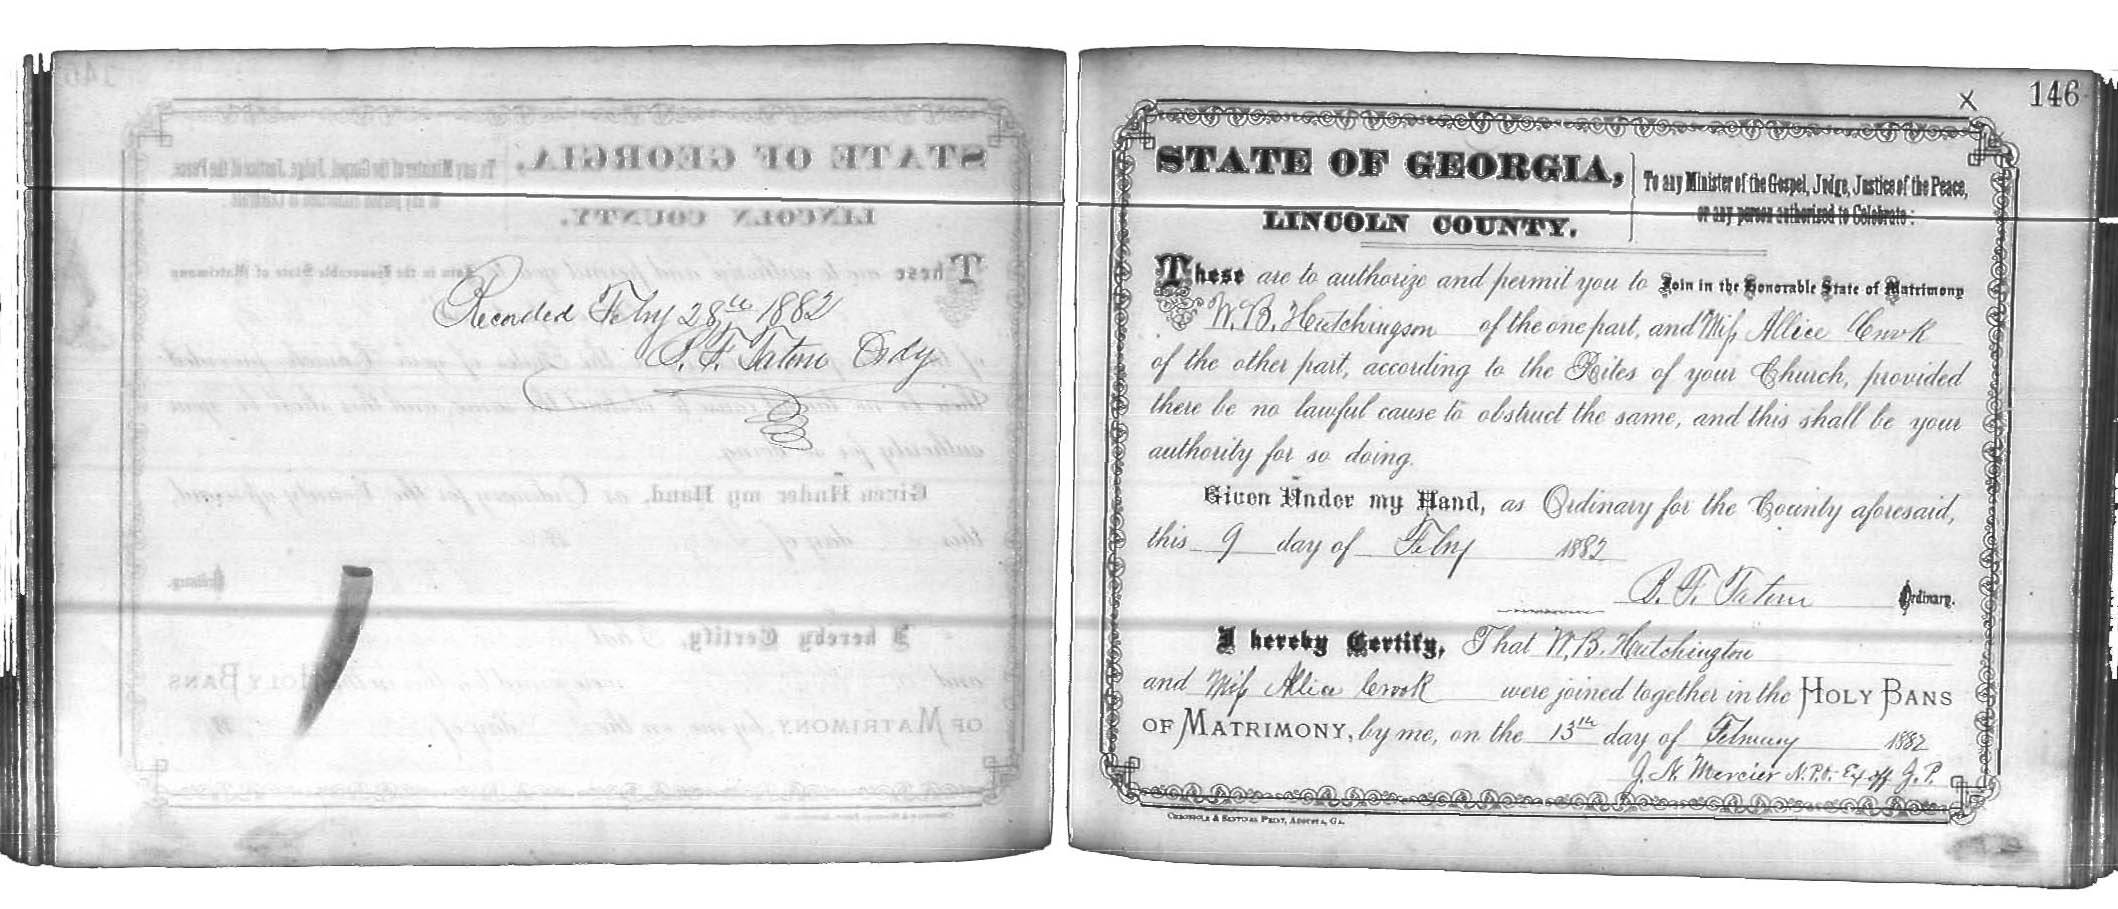 Recorded Feby 28th 1882
B. F. Tatom Ordy
146
X
STATE OF GEORGIA,
LINCOLN COUNTY.
To any Minister of the Gospel, Judge, Justice of the Peace,
or any person authorised to Celebrate:
These are to authorize and permit you to Join in the Honorable State of Matrimony
W. B. Hutchingson of the one part, and Miss Allice Crook
of the other part, according to the Rites of your Church, provided
there be no lawful cause to obstruct the same, and this shall be your
authority for so doing.
Given Under my Hand, as Ordinary for the County aforesaid,
this 9 day of Feby 1882
B. F. Tatom Ordinary.
I hereby Certify, That W. B. Hutchington
and Miss Allice Crook were joined together in the HOLY BANS
OF MATRIMONY, by me, on the 13th day of February 1882
J. N. Mercier N.P. Ex off J.P.
CHRONICLE & SENTINEL PRINT, AUGUSTA, GA.